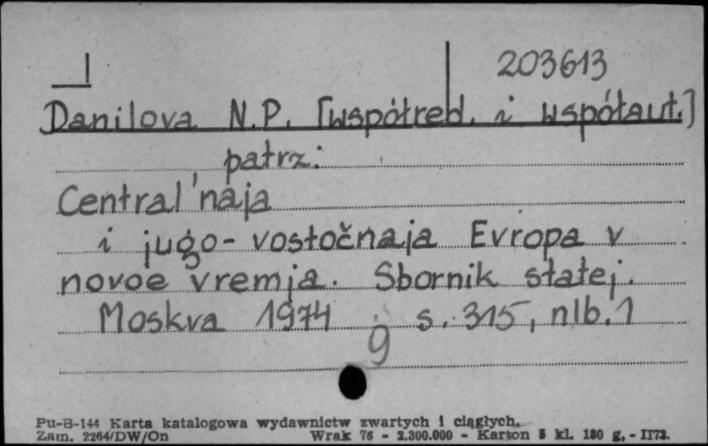 203613
Danilova N.P. [współred. i współaut.]
patrz:
Central'naja
i jugo-vostočnaja Evropa v
novoe vremja. Sbornik statej.
Moskva 1974 s. 315, nlb. 1
9
Pu-B-144 Karta katalogowa wydawnictw zwartych i ciągłych.
Zam. 2264/DW/On Wrak 76 - 2.300.000 - Karton 5 kl. 180 g. - II73.